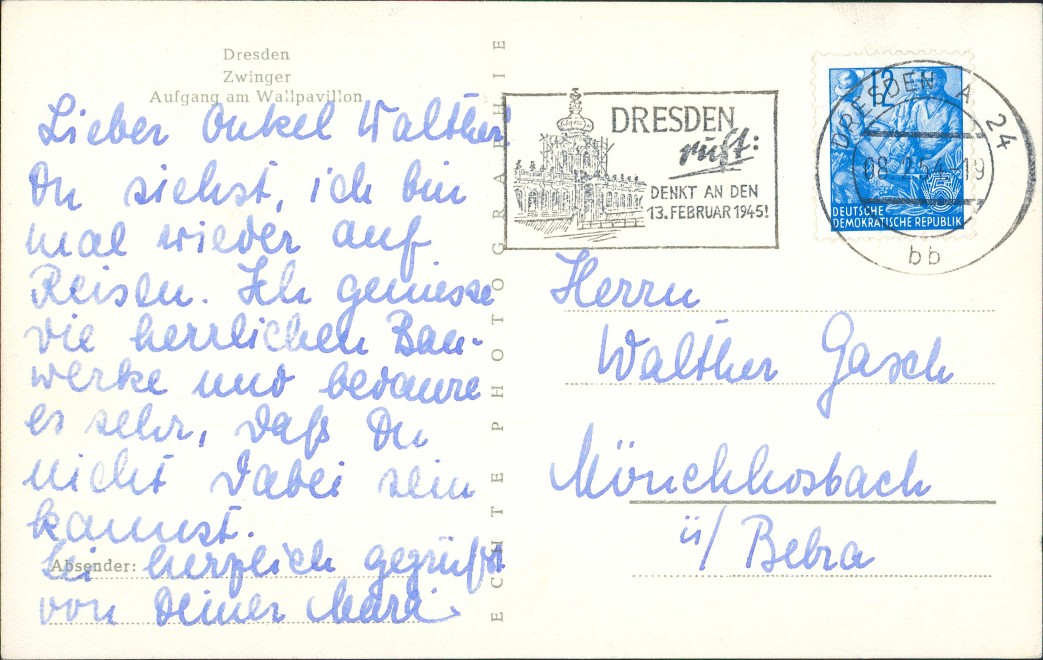 Dresden
Zwinger
Aufgang am Wallpavillon
Lieber Onkel Walther!
Du siehst, ich bin
mal wieder auf
Reisen. Ich geniesse
die herrlichen Bau-
werke und bedaure
es sehr, daß Du
nicht dabei sein
kannst.
Absender:
Sei herzlich gegrüßt
von Deiner
ECHTE PHOTOGRAPHIE
DRESDEN
ruft:
DENKT AN DEN
13. FEBRUAR 1945!
12
DEUTSCHE
DEMOKRATISCHE REPUBLIK
DRESDEN A 24
bb
Herrn
Walther Gasch
Mönchhosbach
ü/ Bebra